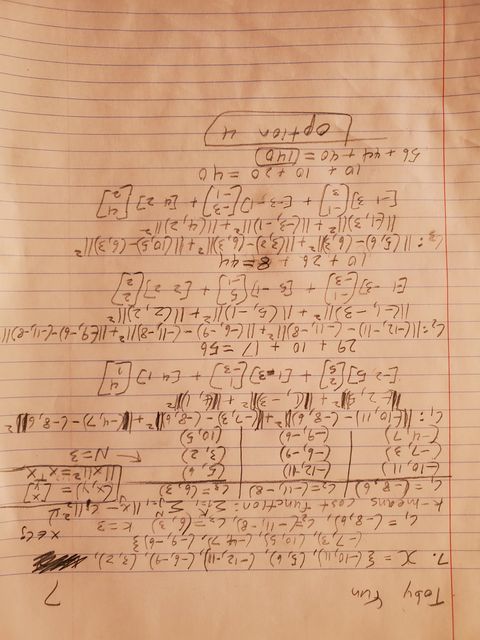 Toby Yun 7
7. X = {(-10,11), (5,6), (-12,-11), (-6,-9), (3,2),
(-7,3), (10,5), (-4,7), (-9,-6)}
C₁ = (-8,6), C₂=(-11,-8), C₃ = (6,3) k=3 x ∈ Cj
k-means cost function: Σᵢ₌₁ᵏ Σⱼ₌₁ᴺ ||xⱼ - cᵢ||₂²
(x,y) = [x y]
||x||² = xᵀx
C₁=(-8,6) | C₂=(-11,-8) | C₃=(6,3)
(-10,11) | (-12,-11) | (5,6)
(-7,3) | (-6,-9) | (3,2) ← N=3
(-4,7) | (-9,-6) | (10,5)
C₁: ||(-10,11)-(-8,6)||² + ||(-7,3)-(-8,6)||² + ||(-4,7)-(-8,6)||²
||-2,5||² + ||(1,-3)||² + ||(4,1)||²
[-2 5][2 5] + [1 -3][1 -3] + [4 1][4 1]
29 + 10 + 17 = 56
C₂: ||(-12,-11)-(-11,-8)||² + ||(-6,-9)-(-11,-8)||² + ||(-9,-6)-(-11,-8)||
||(-1,-3)||² + ||(5,-1)||² + ||(2,2)||²
[-1 -3][-1 -3] + [5 -1][5 -1] + [2 2][2 2]
10 + 26 + 8 = 44
C₃: ||(5,6)-(6,3)||² + ||(3,2)-(6,3)||² + ||(10,5)-(6,3)||²
||(-1,3)||² + ||(-3,-1)||² + ||(4,2)||²
[-1 3][-1 3] + [-3 -1][-3 -1] + [4 2][4 2]
10 + 10 + 20 = 40
56 + 44 + 40 = 140
option 4